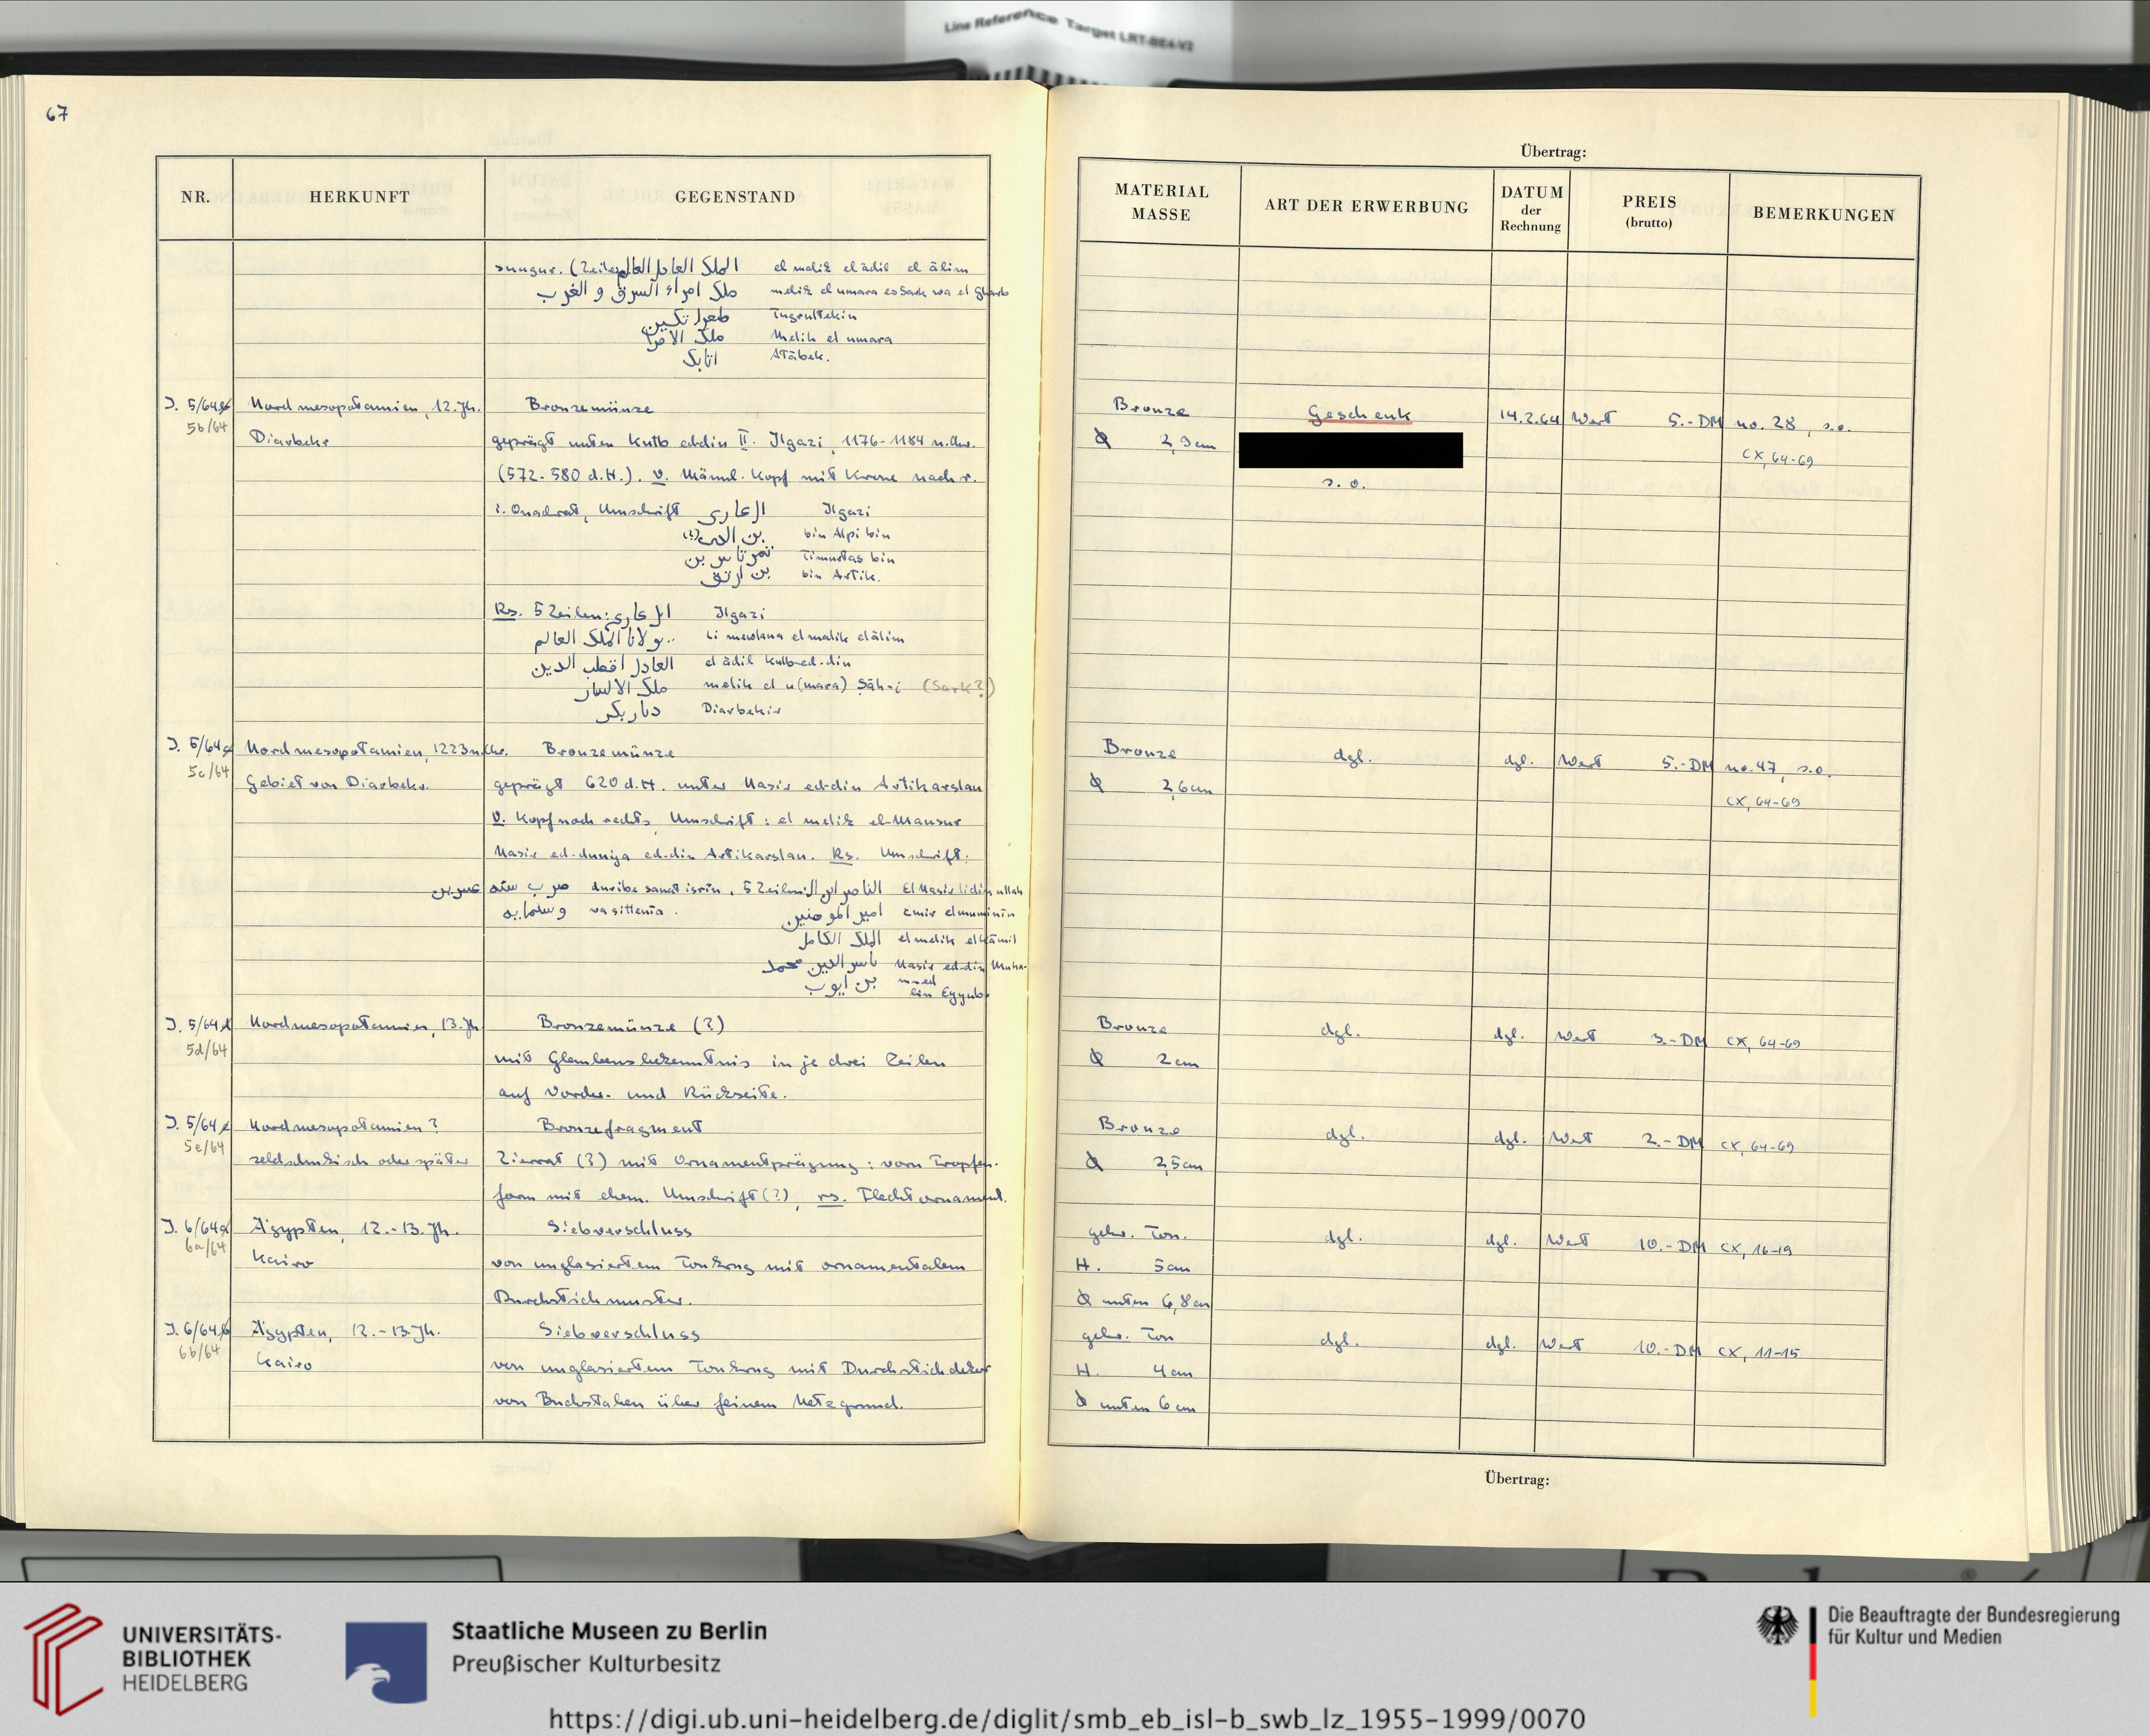 Line Reference Target LRT-BE4-V2
67
NR.
HERKUNFT
GEGENSTAND
sungur. (Zeilen الملك العادل العالم el melik el âdil el âlim
ملك امراء السرق و الغرب melik el umara es Sark wa el Gharb
طغرل تكين Tugrultekin
ملك الامرا Melik el umara
اتابك Atâbek.
J. 5/64b Nordmesopotamien, 12. Jh. Bronzemünze
5b/64
Diarbekr geprägt unter Kutb ed-din II. Ilgazi, 1176-1184 n. Chr.
(572-580 d.H.). V. Männl. Kopf mit Krone nach r.
i. Quadrat, Umschrift الغازى Ilgazi
بن البى(?) bin Alpi bin
تمرتاس بن Timurtas bin
بن ارتق bin Artik.
Rs. 5 Zeilen: الغازى Ilgazi
..مولانا الملك العالم Li mewlana el malik el âlim
العادل اقطب الدين el âdil Kutb-ed-din
melik el u(mara) Şâh-i (Sark?)
دياربكر Diarbekir
J. 5/64c Nordmesopotamien, 1223 n. Chr. Bronzemünze
5c/64
Gebiet von Diarbekr. geprägt 620 d.H. unter Nasir ed-din Artikarslan
V. Kopf nach rechts, Umschrift: el melik el-Mansur
Nasir ed-dunija ed-din Artikarslan. Rs. Umschrift:
عسرين صرب سنه duribe sanat isrin, 5 Zeilen: El Nasir lidin ullah
وستمايه va sittemia. امير المومنين Emir elmuminîn
الملك الكامل el melik el kâmil
ناسر الدين محمد Nasir ed-din Muha-
med
بن ايوب bin Eyyub.
J. 5/64d Nordmesopotamien, 13. Jh. Bronzemünze (?)
5d/64
mit Glaubensbekenntnis in je drei Zeilen
auf Vorder- und Rückseite.
J. 5/64e Nordmesopotamien? Bronzefragment
5e/64
seldschukisch oder später Zierrat (?) mit Ornamentprägung: vorn Tropfen-
form mit ehem. Umschrift (?), rs. Flechtornament.
J. 6/64a Ägypten, 12.-13. Jh. Siebverschluss
6a/64
Kairo von unglasiertem Tonkrug mit ornamentalem
Durchstichmuster.
J. 6/64b Ägypten, 12.-13. Jh. Siebverschluss
6b/64
Kairo von unglasiertem Tonkrug mit Durchstichdekor
von Buchstaben über feinem Netzgrund.
Übertrag:
MATERIAL
MASSE
ART DER ERWERBUNG
DATUM
der
Rechnung
PREIS
(brutto)
BEMERKUNGEN
Bronze Geschenk 14.2.64 Wert 5.- DM no. 28, s.o.
Ø 2,9 cm CX, 64-69
s. o.
Bronze dgl. dgl. Wert 5.- DM no. 47, s.o.
Ø 2,6 cm CX, 64-69
Bronze dgl. dgl. Wert 3.- DM CX, 64-69
Ø 2 cm
Bronze dgl. dgl. Wert 2.- DM CX, 64-69
Ø 2,5 cm
gebr. Ton. dgl. dgl. Wert 10.- DM CX, 16-19
H. 5 cm
Ø unten 6,8 cm
gebr. Ton dgl. dgl. Wert 10.- DM CX, 11-15
H. 4 cm
Ø unten 6 cm
Übertrag:
UNIVERSITÄTS-
BIBLIOTHEK
HEIDELBERG
Staatliche Museen zu Berlin
Preußischer Kulturbesitz
Die Beauftragte der Bundesregierung
für Kultur und Medien
https://digi.ub.uni-heidelberg.de/diglit/smb_eb_isl-b_swb_lz_1955-1999/0070